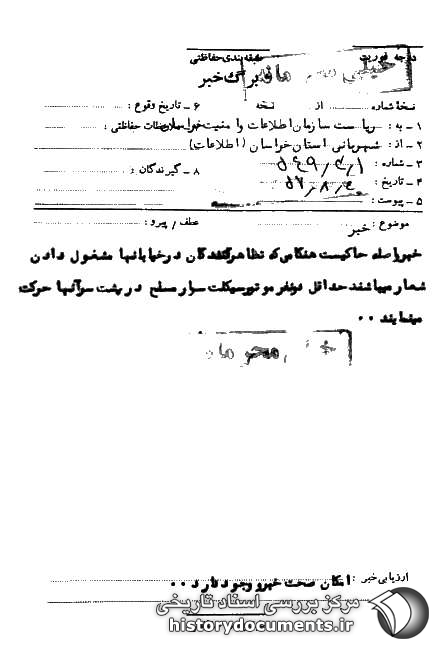 درجه فوریت طبقه‌بندی حفاظتی
خیلی محرمانه
برگ خبر
نسخهٔ شماره از نسخه
۶ ـ تاریخ وقوع :
۱ ـ به : ریاست سازمان اطلاعات و امنیت خراسان
ملاحظات حفاظتی :
۲ ـ از : شهربانی استان خراسان (اطلاعات)
۳ ـ شماره :
۸ ـ گیرندگان :
۴ ـ تاریخ : ۵۷/۸/۴
۵ ـ پیوست :
موضوع : خبر عطف / پیرو :
خبر واصله حاکیست هنگامی که تظاهرکنندگان در خیابانها مشغول دادن
شعار میباشند حداقل دونفر موتورسیکلت سوار مسلح در پشت سر آنها حرکت
مینمایند ۰۰
خیلی محرمانه
ارزیابی خبر : امکان صحت خبر وجود دارد ۰۰
مرکز بررسی اسناد تاریخی
historydocuments.ir